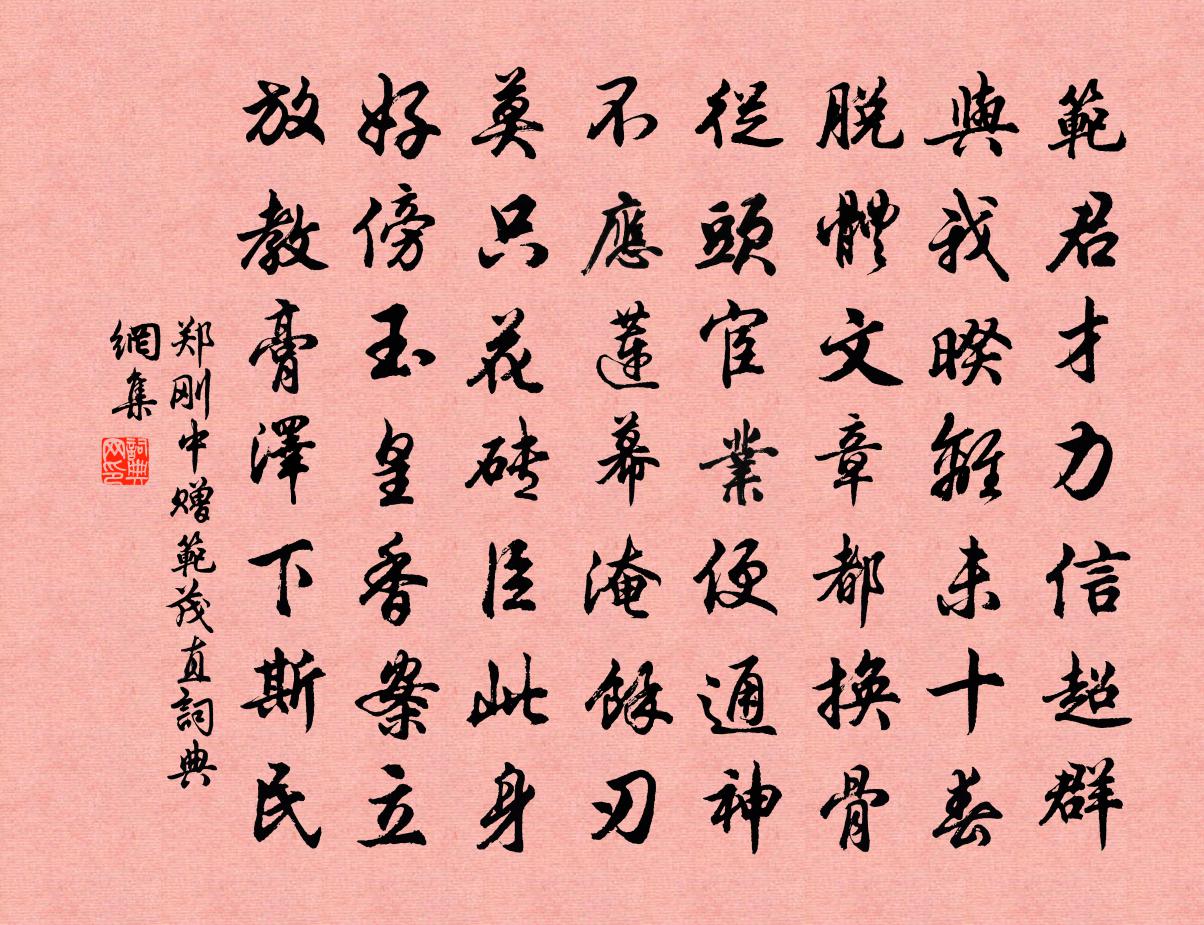 範君才力信超群
與我暌離未十春
脫體文章都換骨
從頭宦業便通神
不應蓮幕淹餘刃
莫只花磚臣此身
好傍玉皇香案立
放教膏澤下斯民
郑刚中赠範茂直詞典
網集
詞典
网